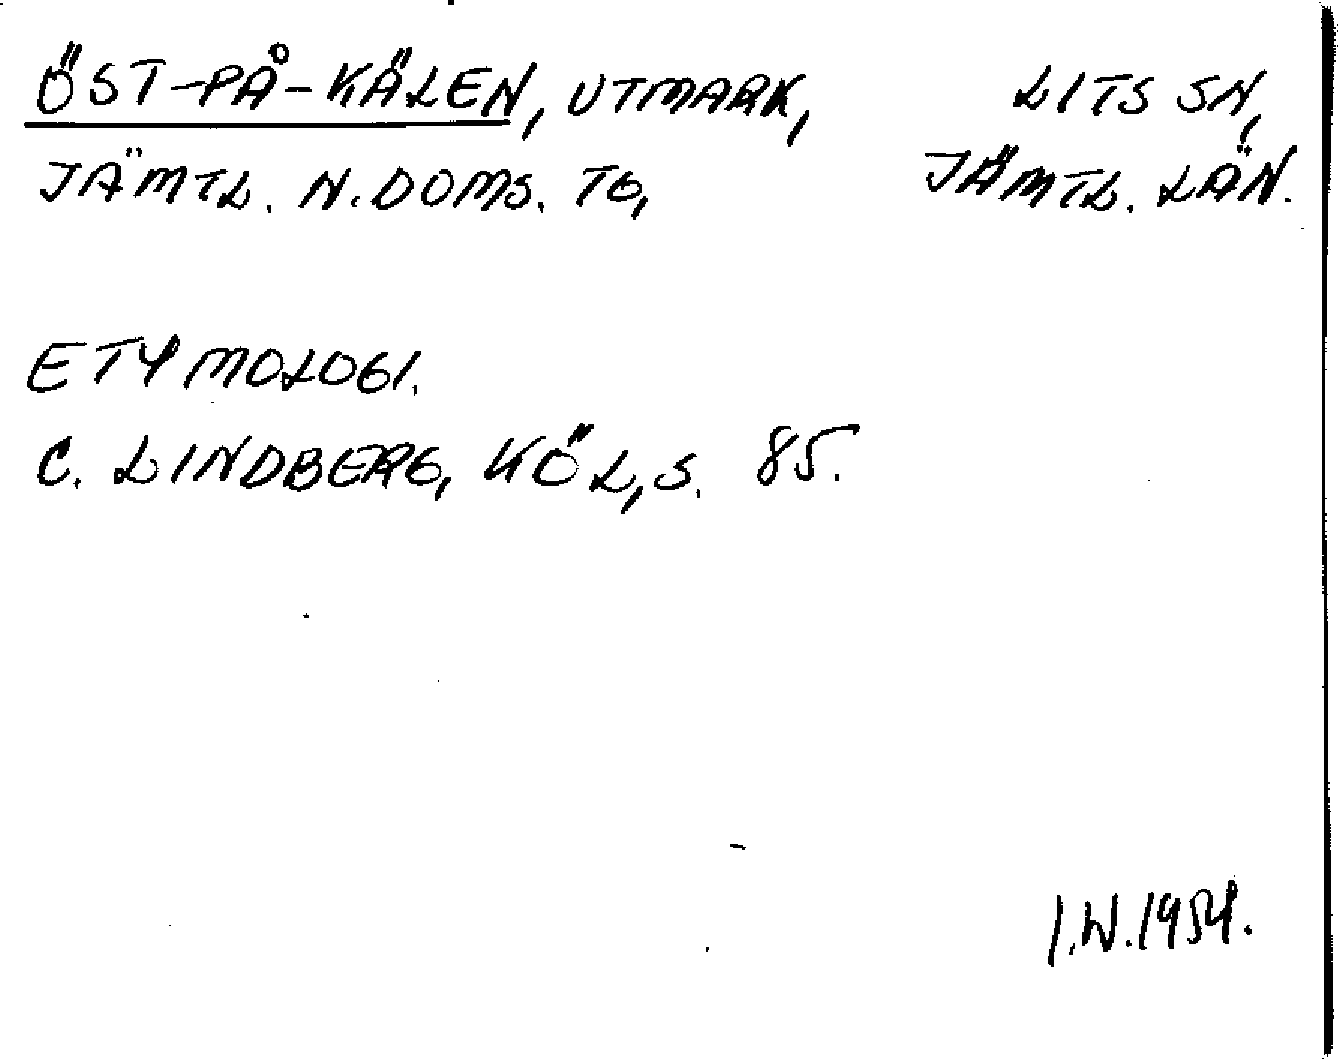 ÖST-PÅ-KÄLEN, UTMARK, LITS SN,
JÄMTL. N. DOMS. TG, JÄMTL. LÄN.
ETYMOLOGI.
C. LINDBERG, KÖL, S. 85.
I.W. 1954.